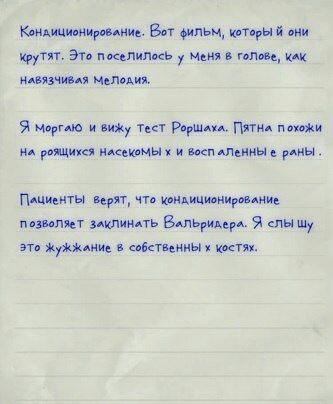 Кондиционирование. Вот фильм, который они
крутят. Это поселилось у меня в голове, как
навязчивая мелодия.
Я моргаю и вижу тест Роршаха. Пятна похожи
на роящихся насекомых и воспаленные раны.
Пациенты верят, что кондиционирование
позволяет заклинать Вальридера. Я слышу
это жужжание в собственных костях.